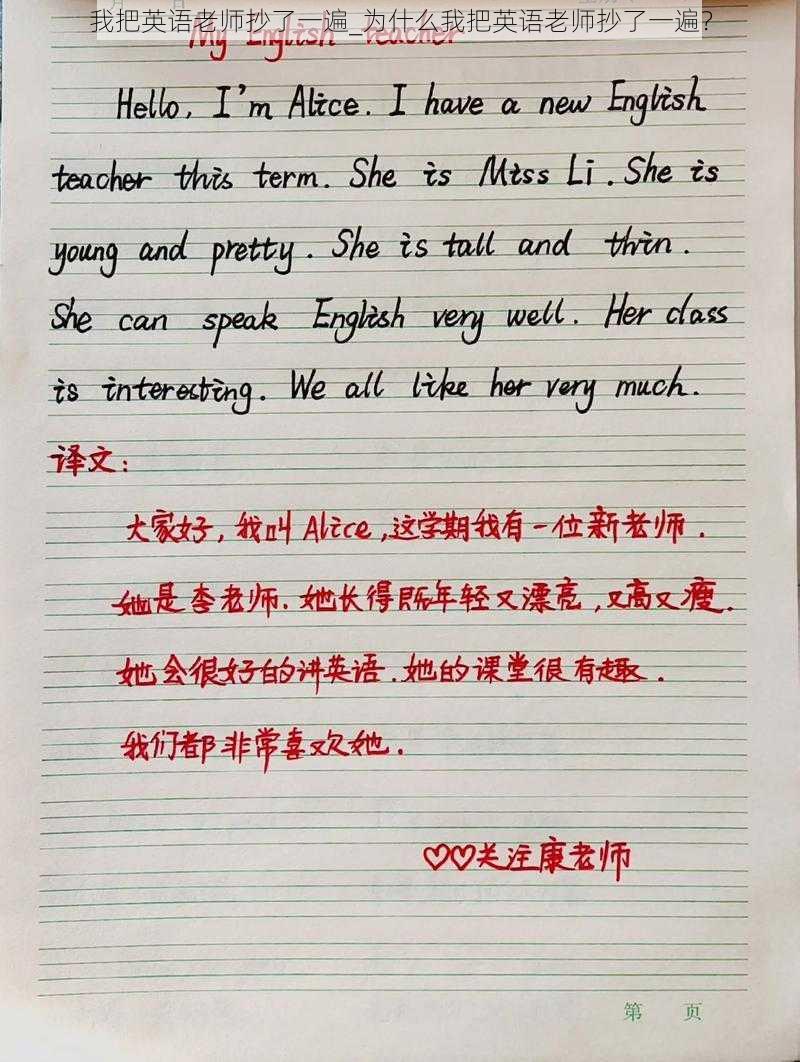 我把英语老师抄了一遍_为什么我把英语老师抄了一遍？
My English teacher
Hello, I'm Alice. I have a new English
teacher this term. She is Miss Li. She is
young and pretty. She is tall and thin.
She can speak English very well. Her class
is interesting. We all like her very much.
译文：
大家好，我叫Alice,这学期我有一位新老师.
她是李老师.她长得既年轻又漂亮,又高又瘦.
她会很好的讲英语.她的课堂很有趣.
我们都非常喜欢她.
♡♡关注康老师
第 页